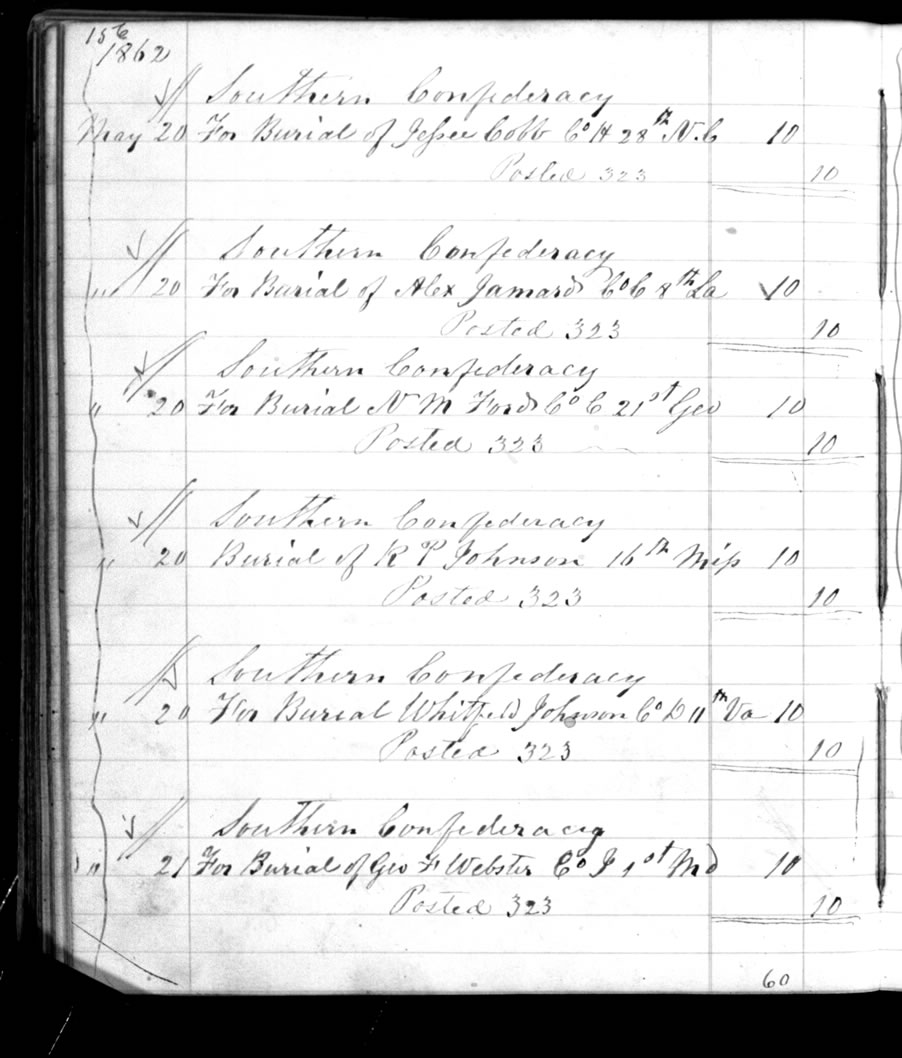 156
1862
Southern Confederacy
May 20 For Burial of Jessee Cobb Co H 28th N.C 10
Posted 323 10
Southern Confederacy
" 20 For Burial of Alex Jamard Co C 8th La 10
Posted 323 10
Southern Confederacy
" 20 For Burial N M Ford Co C 21st Geo 10
Posted 323 10
Southern Confederacy
" 20 Burial of R P Johnson 16th Miss 10
Posted 323 10
Southern Confederacy
" 20 For Burial Whitfeld Johnson Co D 11th Va 10
Posted 323 10
Southern Confederacy
" 21 For Burial of Geo F Webster Co I 1st Md 10
Posted 323 10
60